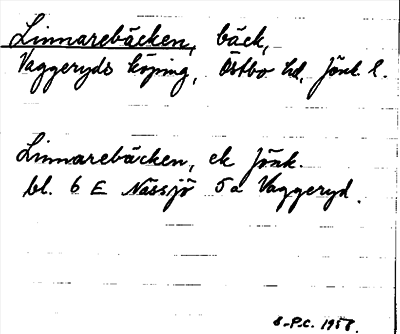 Linnarebäcken, bäck,
Vaggeryds köping, Östbo hd, Jönk. l.
Linnarebäcken, ek Jönk.
bl. 6 E Nässjö 5a Vaggeryd.
S.-P.C. 1958.